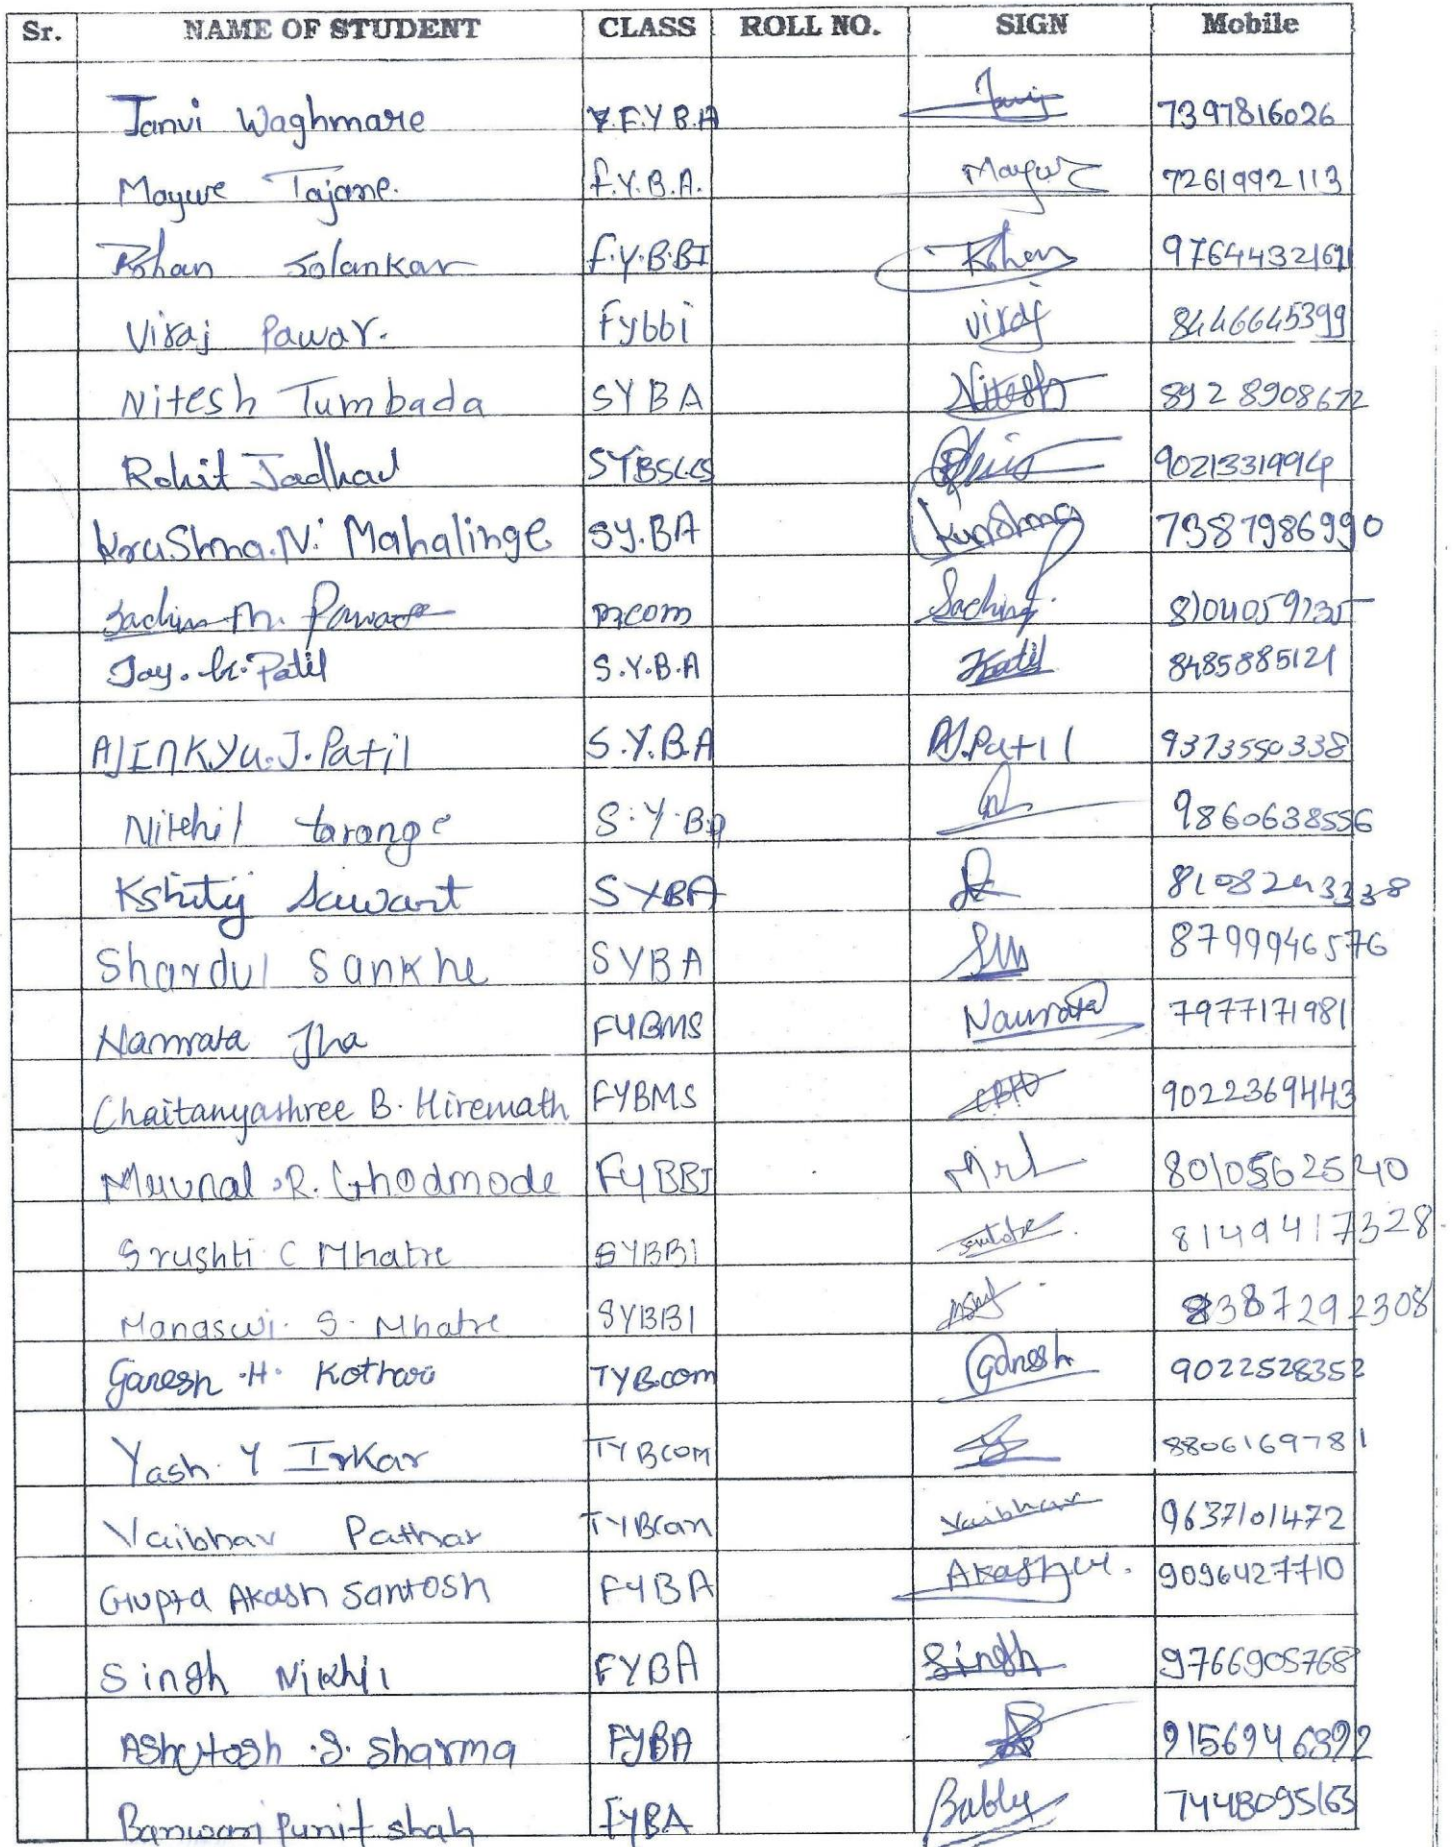 Sr. NAME OF STUDENT CLASS ROLL NO. SIGN Mobile
Janvi Waghmare F.Y B.A 7397816026
Mayure Tajane. F.Y.B.A. Mayur 7261992113
Rohan Solankar F.Y.B.BI Rohan
Viraj Pawar. Fybbi Viraj 8446645399
Nitesh Tumbada SYBA Nitesh 8928908672
Rohit Jadhav SYBSC.CS 9021331994
KruShna.N. Mahalinge SY.BA Krushna 7387986990
Sachin M. Pawar M.com Sachin
Jay. K. Patil S.Y.B.A Patil 8485885121
AJINKYa.J.Patil S.Y.B.A AJ.Patil 9373550338
Nikhil tarange S.Y.BA 9860638556
Kshitij Sawant SYBA 8108243338
Shardul Sankhe SYBA 8799946576
Namrata Jha FYBMS Namrata 7977171981
Chaitanyashree B. Hiremath FYBMS CBH 9022369443
Mrunal .R. Ghodmode FYBBI Mrl 8010562540
Srushti C Mhatre SYBBI 8149417328
Manaswi. S. Mhatre SYBBI 8387292308
Ganesh .H. Kothari TYBcom Ganesh 9022528352
Yash. Y Irkar TYBCOM 8806169781
Vaibhav Pathar TYBCom Vaibhav 9637101472
Gupta Akash Santosh FYBA Akash 9096427710
Singh Nikhil FYBA Singh 9766905768
AShutosh .S. Sharma FYBA 9156946392
Banwari Punit shah FYBA Bably 7448095163